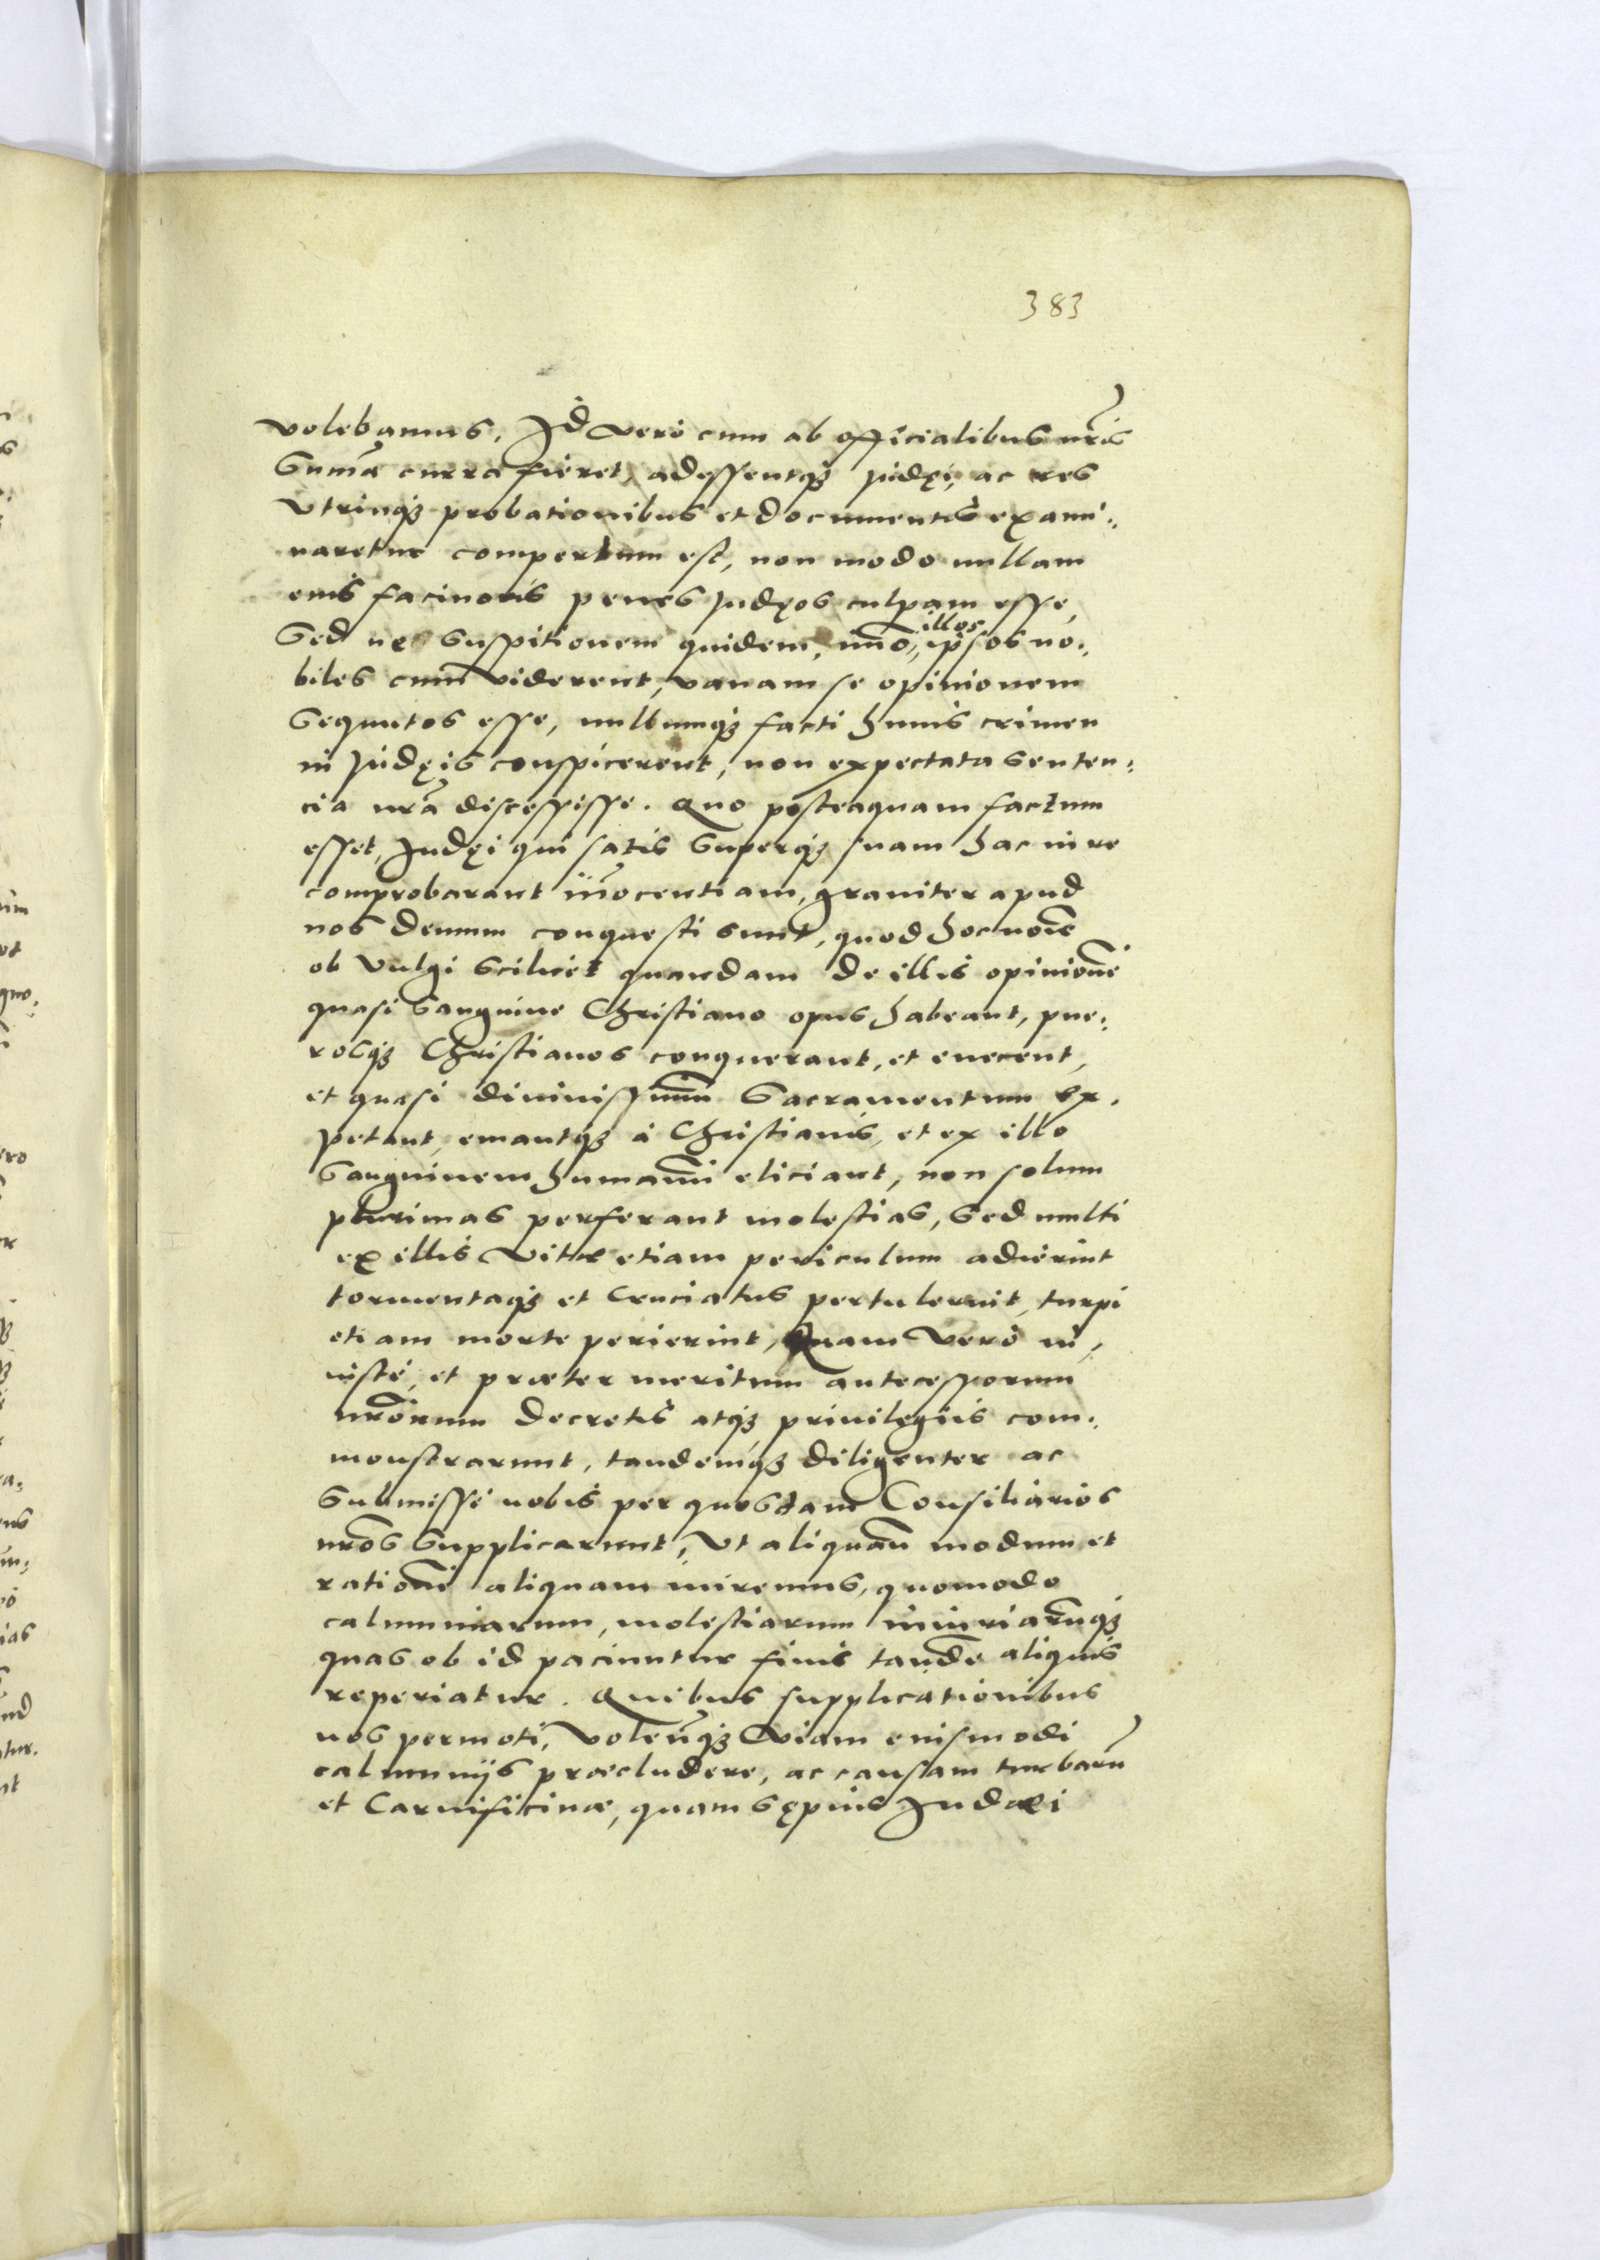 383
volebamus. Id vero cum ab officialibus nr̃is
sum̃a curra fieret, adessentqꝫ Judęi, ac res
utrinqꝫ probationibus et documentis exami:
naretur compertum est, non modo nullam
eius facinoris penes Judęos culpam esse,
illos
Sed ne suspitionem quidem, im̃o, ipsos no:
biles cum viderent, vanam se opinionem
sequutos esse, nullumqꝫ facti huius crimen
in Judęis conspicerent, non expectata senten:
cia nr̃a discessisse. Quo posteaquam factum
esset, Judęi qui satis superqꝫ suam hac in re
comprobarant iñocentiam, graviter apud
nos demum conquesti sunt, quod hoc noĩe
ob vulgi scilicet quandam de illis opinionẽ
quasi sanguine Christiano opus habeant, pue:
rosqꝫ Christianos conquerant, et enecent,
et quasi divinissimũ Sacramentum ex.
petant, emantqꝫ à Christianis, et ex illo
sanguinem humanũ eliciant, non solum
plurimas perferant molestias, sed multi
ex illis vitæ etiam periculum adierint
tormentaqꝫ et Cruciatus pertulerint, turpi
etiam morte perierint, Quam vero in,
iuste, et præter meritum antecessorum
nr̃orum decretis atqꝫ privilegiis com:
monstrarunt, tandemqꝫ diligenter ac
submisse nobis per quosdam Consiliarios
nr̃os supplicarunt, Ut aliquam̃ modum et
rationẽ aliquam iniremus, quomodo
calumniarum, molestiarum iniuriarũqꝫ
quas ob id paciuntur finis tandẽ aliquis
reperiatur. Quibus supplicationibus
nos permoti, Volentẽqꝫ viam eiusmodi
calumnijs præcludere, ac causam turbarũ
et Carnificinæ, quam sępius Judæi